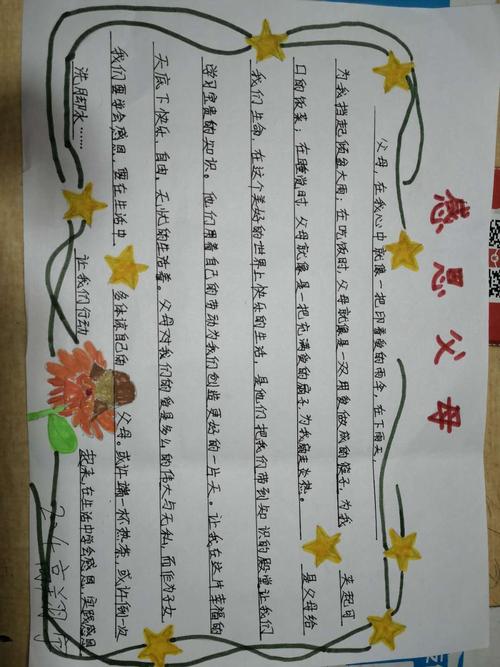 感恩父母
父母，在我心中就像一把印着爱的雨伞，在下雨天，
为我挡起倾盆大雨；在吃饭时，父母就像是一双用爱做成的筷子，为我夹起可
口的饭菜；在睡觉时，父母就像是一把充满爱的扇子，为我扇走炎热。是父母给
我们生命，在这个美好的世界上快乐的生活，是他们把我们带到知识的殿堂让我们
学习宝贵的知识。他们用着自己的劳动为我们创造更好的一片天。让我在这片幸福的
天底下快乐、自由、无忧的生活着。父母对我们的爱是多么的伟大与无私，而作为子女
我们要学会感恩，要在生活中多体谅自己的父母。或许端一杯热茶，或许倒一次
洗脚水……让我们行动起来，在生活中学会感恩，实践感恩